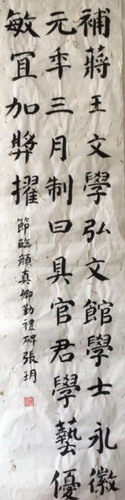 補蔣王文學弘文館學士永徽
元年三月制曰具官君學藝優
敏宜加獎擢
節臨顏真卿勤禮碑張玥